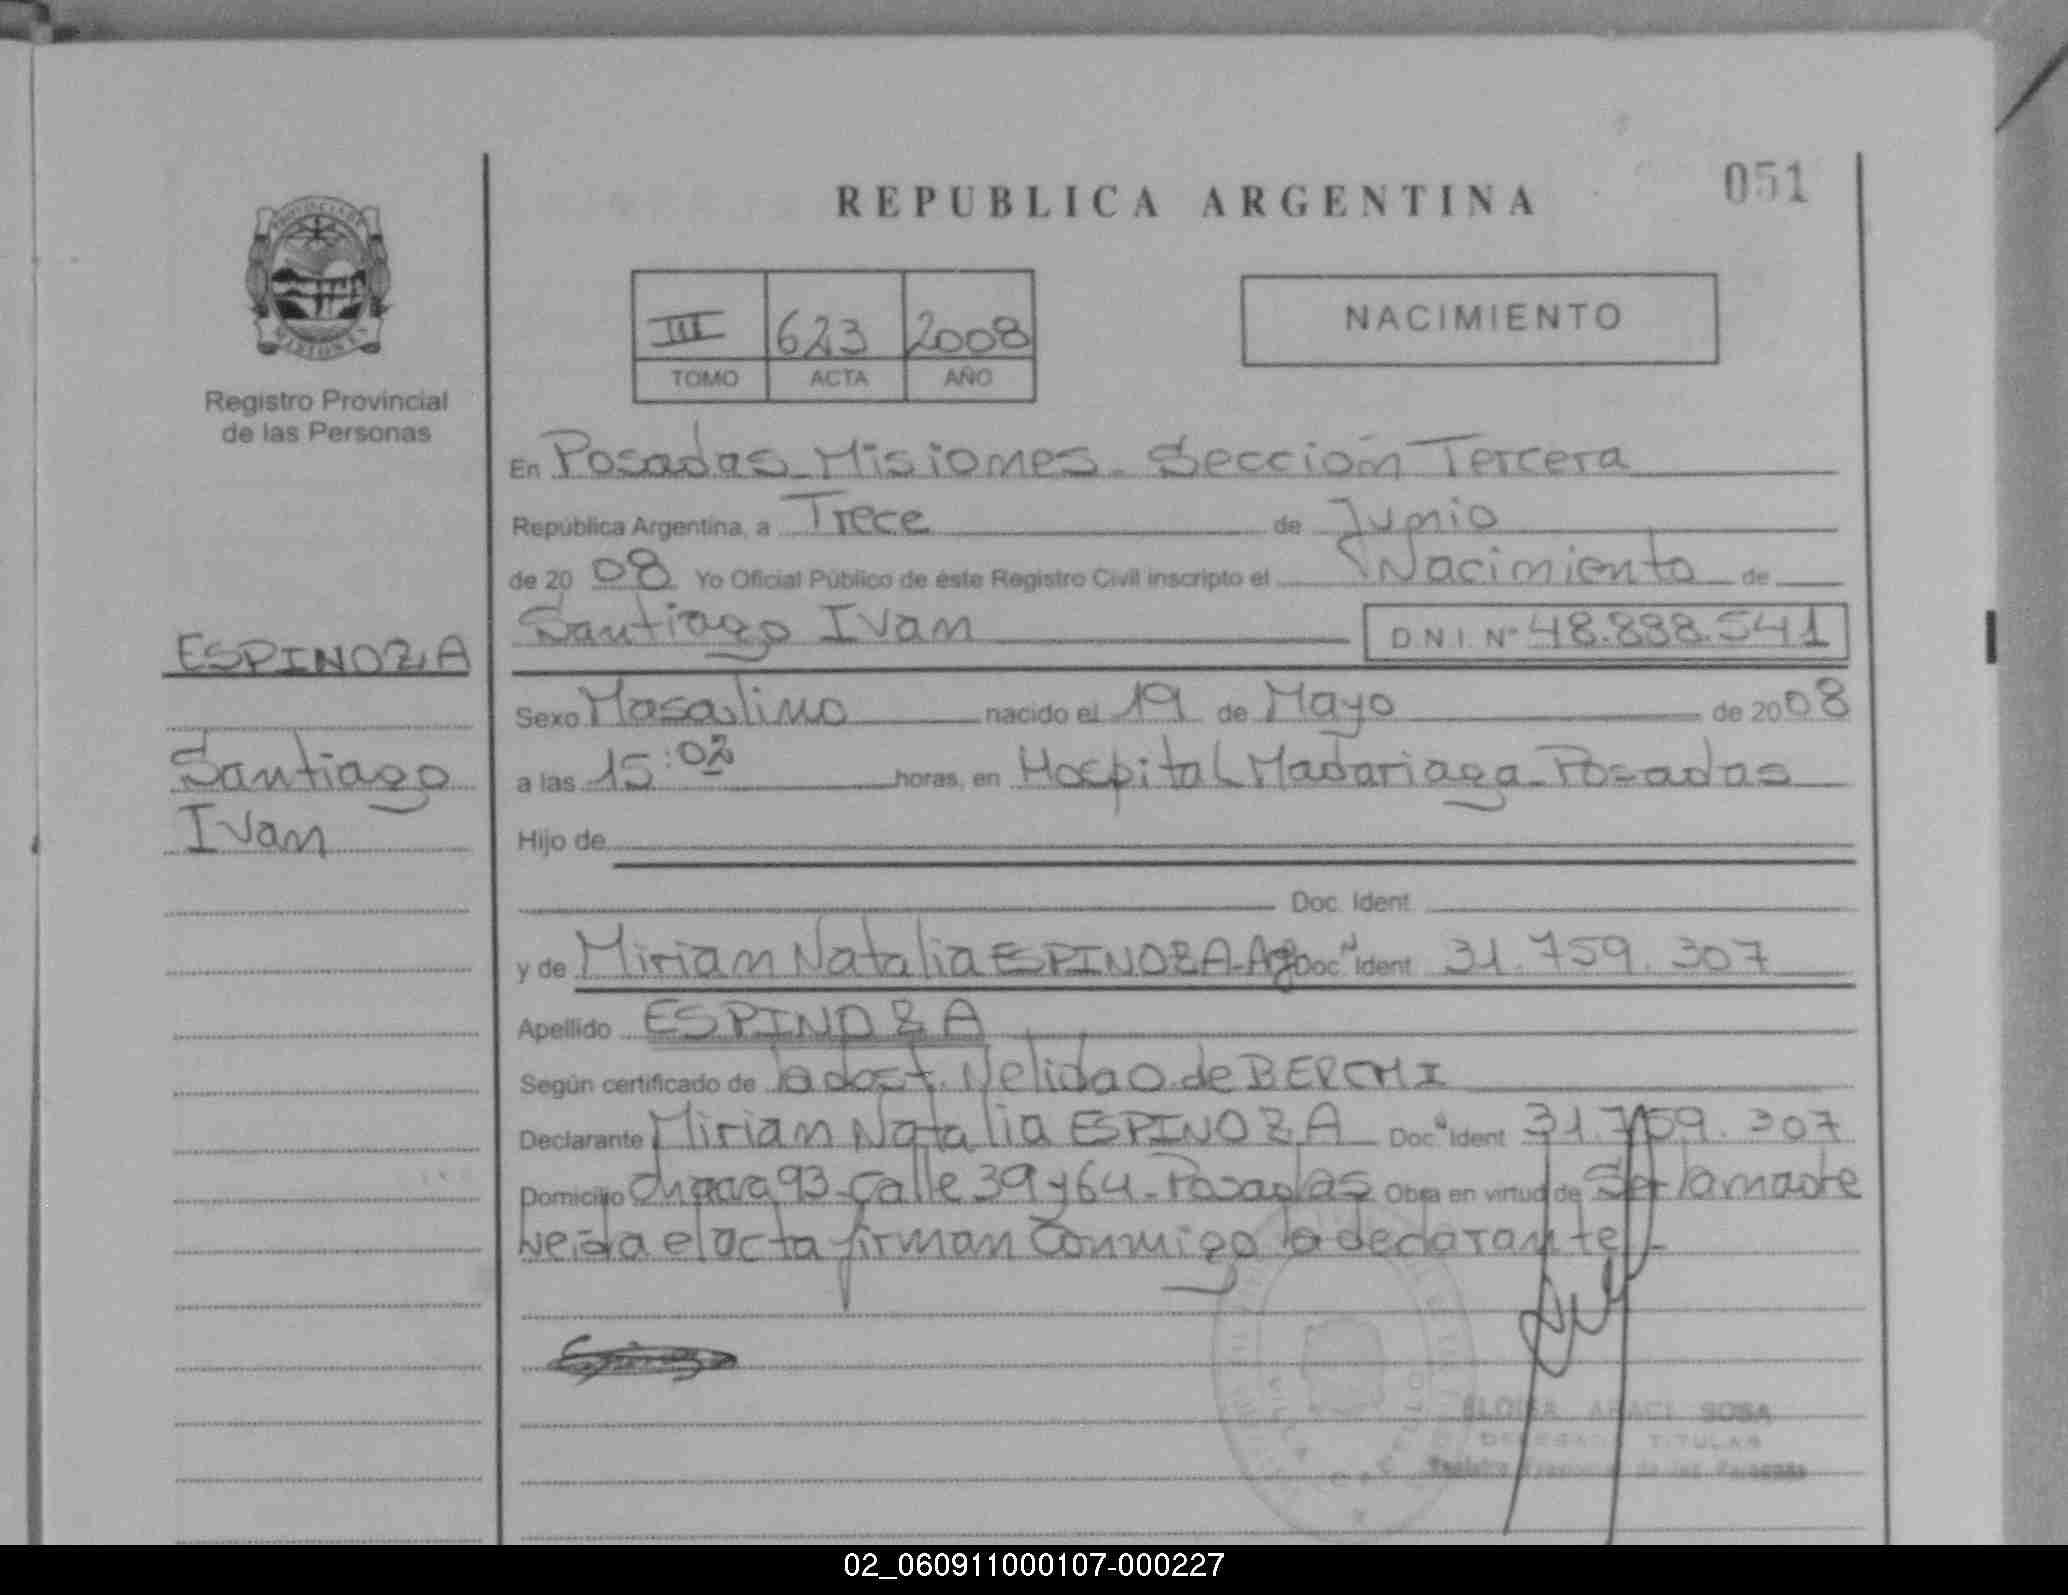 051
REPUBLICA ARGENTINA
PROVINCIA DE
MISIONES
Registro Provincial
de las Personas
III 623 2008
TOMO ACTA AÑO
NACIMIENTO
En Posadas Misiones - Sección Tercera
República Argentina, a Trece de Junio
de 2008 Yo Oficial Público de éste Registro Civil inscripto el Nacimiento de
Santiago Ivan D.N.I. Nº 48.838.541
ESPINOZA
Santiago
Ivan
Sexo Masculino nacido el 19 de Mayo de 2008
a las 15:02 horas, en Hospital Madariaga - Posadas
Hijo de
Doc. Ident
y de Mirian Natalia ESPINOZA - Arg Doc Ident 31.759.307
Apellido ESPINOZA
Según certificado de la dost. Nelida O. de BERCHI
Declarante Mirian Natalia ESPINOZA Doc Ident 31.759.307
Domicilio Chacra 93 - Calle 39 y 64 - Posadas Obra en virtud de Ser la madre
Leida el acta firman Conmigo la declarante -
SOSA
TITULAR
02_060911000107-000227